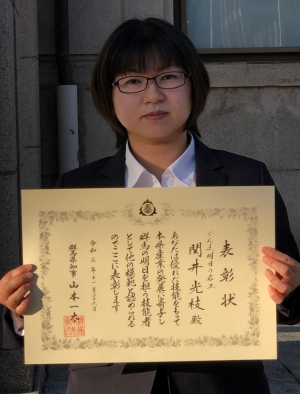 表彰状
ぐんま明日の名工
関井光枝 殿
あなたは優れた技能をもって
本県産業の発展に寄与し
群馬の明日を担う技能者
として他の模範と認められる
のでここに表彰します
令和三年十一月二十六日
群馬県知事 山本一太